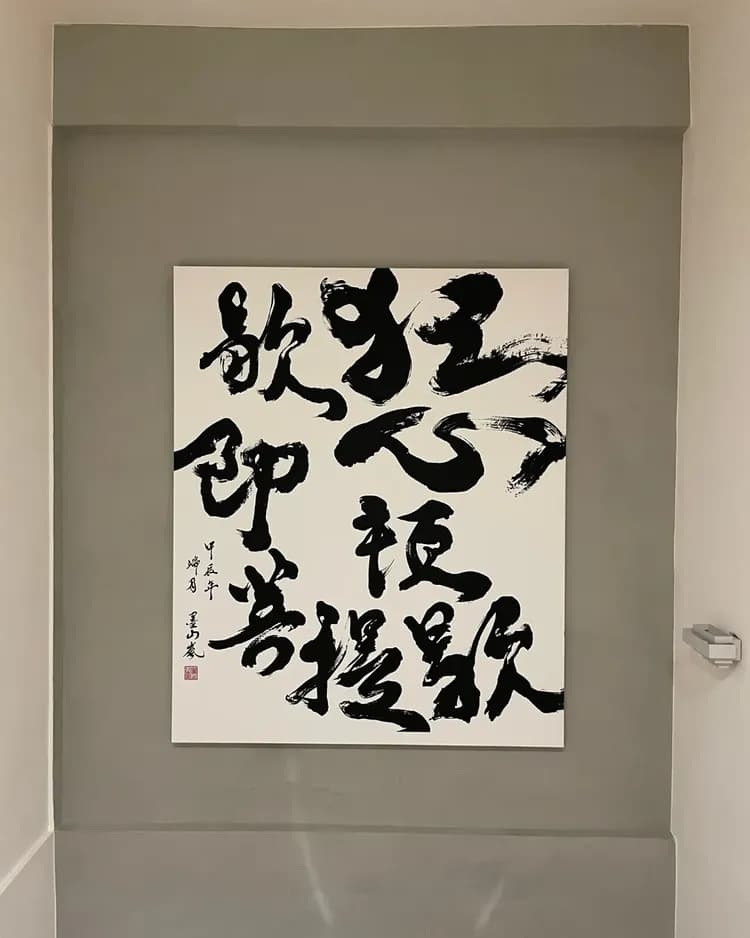 狂心頓歇
歇即菩提
甲辰年
端月
墨山